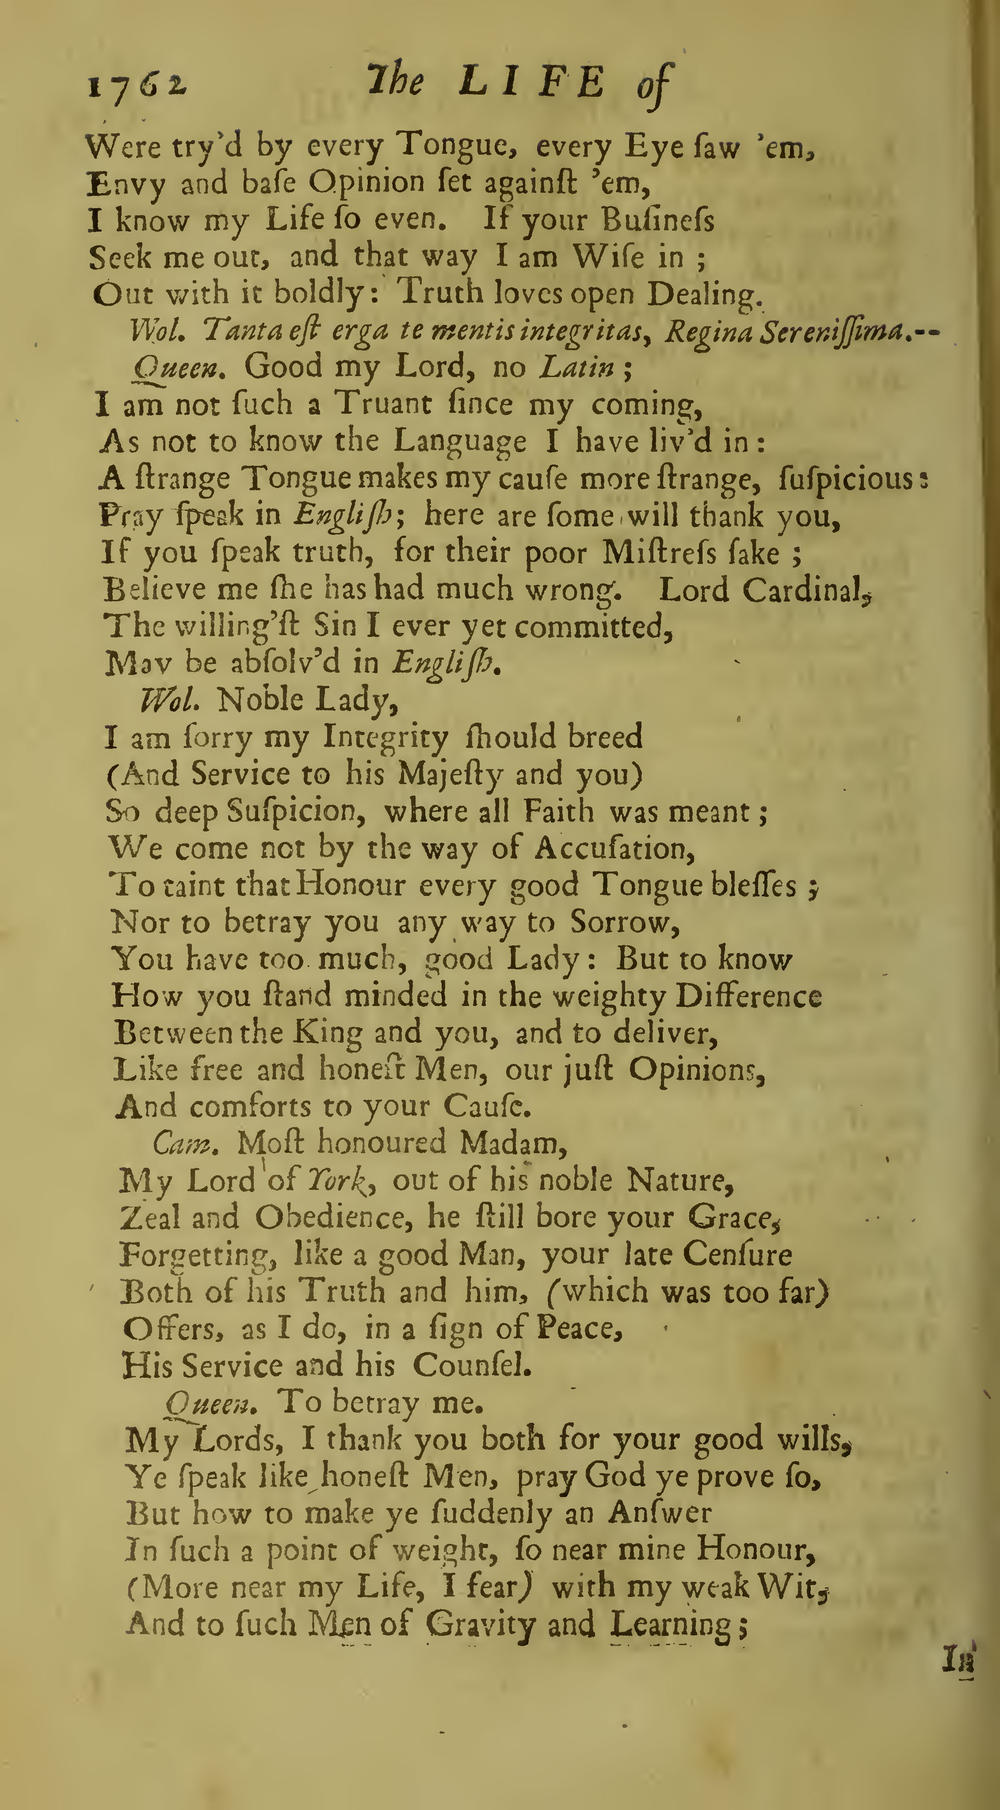 1762 The LIFE of
Were try'd by every Tongue, every Eye ſaw 'em,
Envy and baſe Opinion ſet againſt 'em,
I know my Life ſo even. If your Buſineſs
Seek me out, and that way I am Wiſe in ;
Out with it boldly: Truth loves open Dealing.
Wol. Tanta eſt erga te mentis integritas, Regina Sereniſſima.--
Queen. Good my Lord, no Latin ;
I am not ſuch a Truant ſince my coming,
As not to know the Language I have liv'd in :
A ſtrange Tongue makes my cauſe more ſtrange, ſuſpicious :
Pray ſpeak in Engliſh; here are ſome will thank you,
If you ſpeak truth, for their poor Miſtreſs ſake ;
Believe me ſhe has had much wrong. Lord Cardinal,
The willing'ſt Sin I ever yet committed,
May be abſolv'd in Engliſh.
Wol. Noble Lady,
I am ſorry my Integrity ſhould breed
(And Service to his Majeſty and you)
So deep Suſpicion, where all Faith was meant ;
We come not by the way of Accuſation,
To taint that Honour every good Tongue bleſſes ;
Nor to betray you any way to Sorrow,
You have too much, good Lady : But to know
How you ſtand minded in the weighty Difference
Between the King and you, and to deliver,
Like free and honeſt Men, our juſt Opinions,
And comforts to your Cauſe.
Cam. Moſt honoured Madam,
My Lord of York, out of his noble Nature,
Zeal and Obedience, he ſtill bore your Grace,
Forgetting, like a good Man, your late Cenſure
Both of his Truth and him, (which was too far)
Offers, as I do, in a ſign of Peace,
His Service and his Counſel.
Queen. To betray me.
My Lords, I thank you both for your good wills,
Ye ſpeak like honeſt Men, pray God ye prove ſo,
But how to make ye ſuddenly an Anſwer
In ſuch a point of weight, ſo near mine Honour,
(More near my Life, I fear) with my weak Wit,
And to ſuch Men of Gravity and Learning ;
In